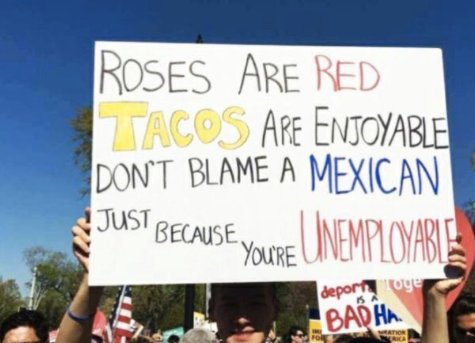 ROSES ARE RED
TACOS ARE ENJOYABLE
DON'T BLAME A MEXICAN
JUST BECAUSE YOU'RE UNEMPLOYABLE
deport
IS A
BAD HA
Toge